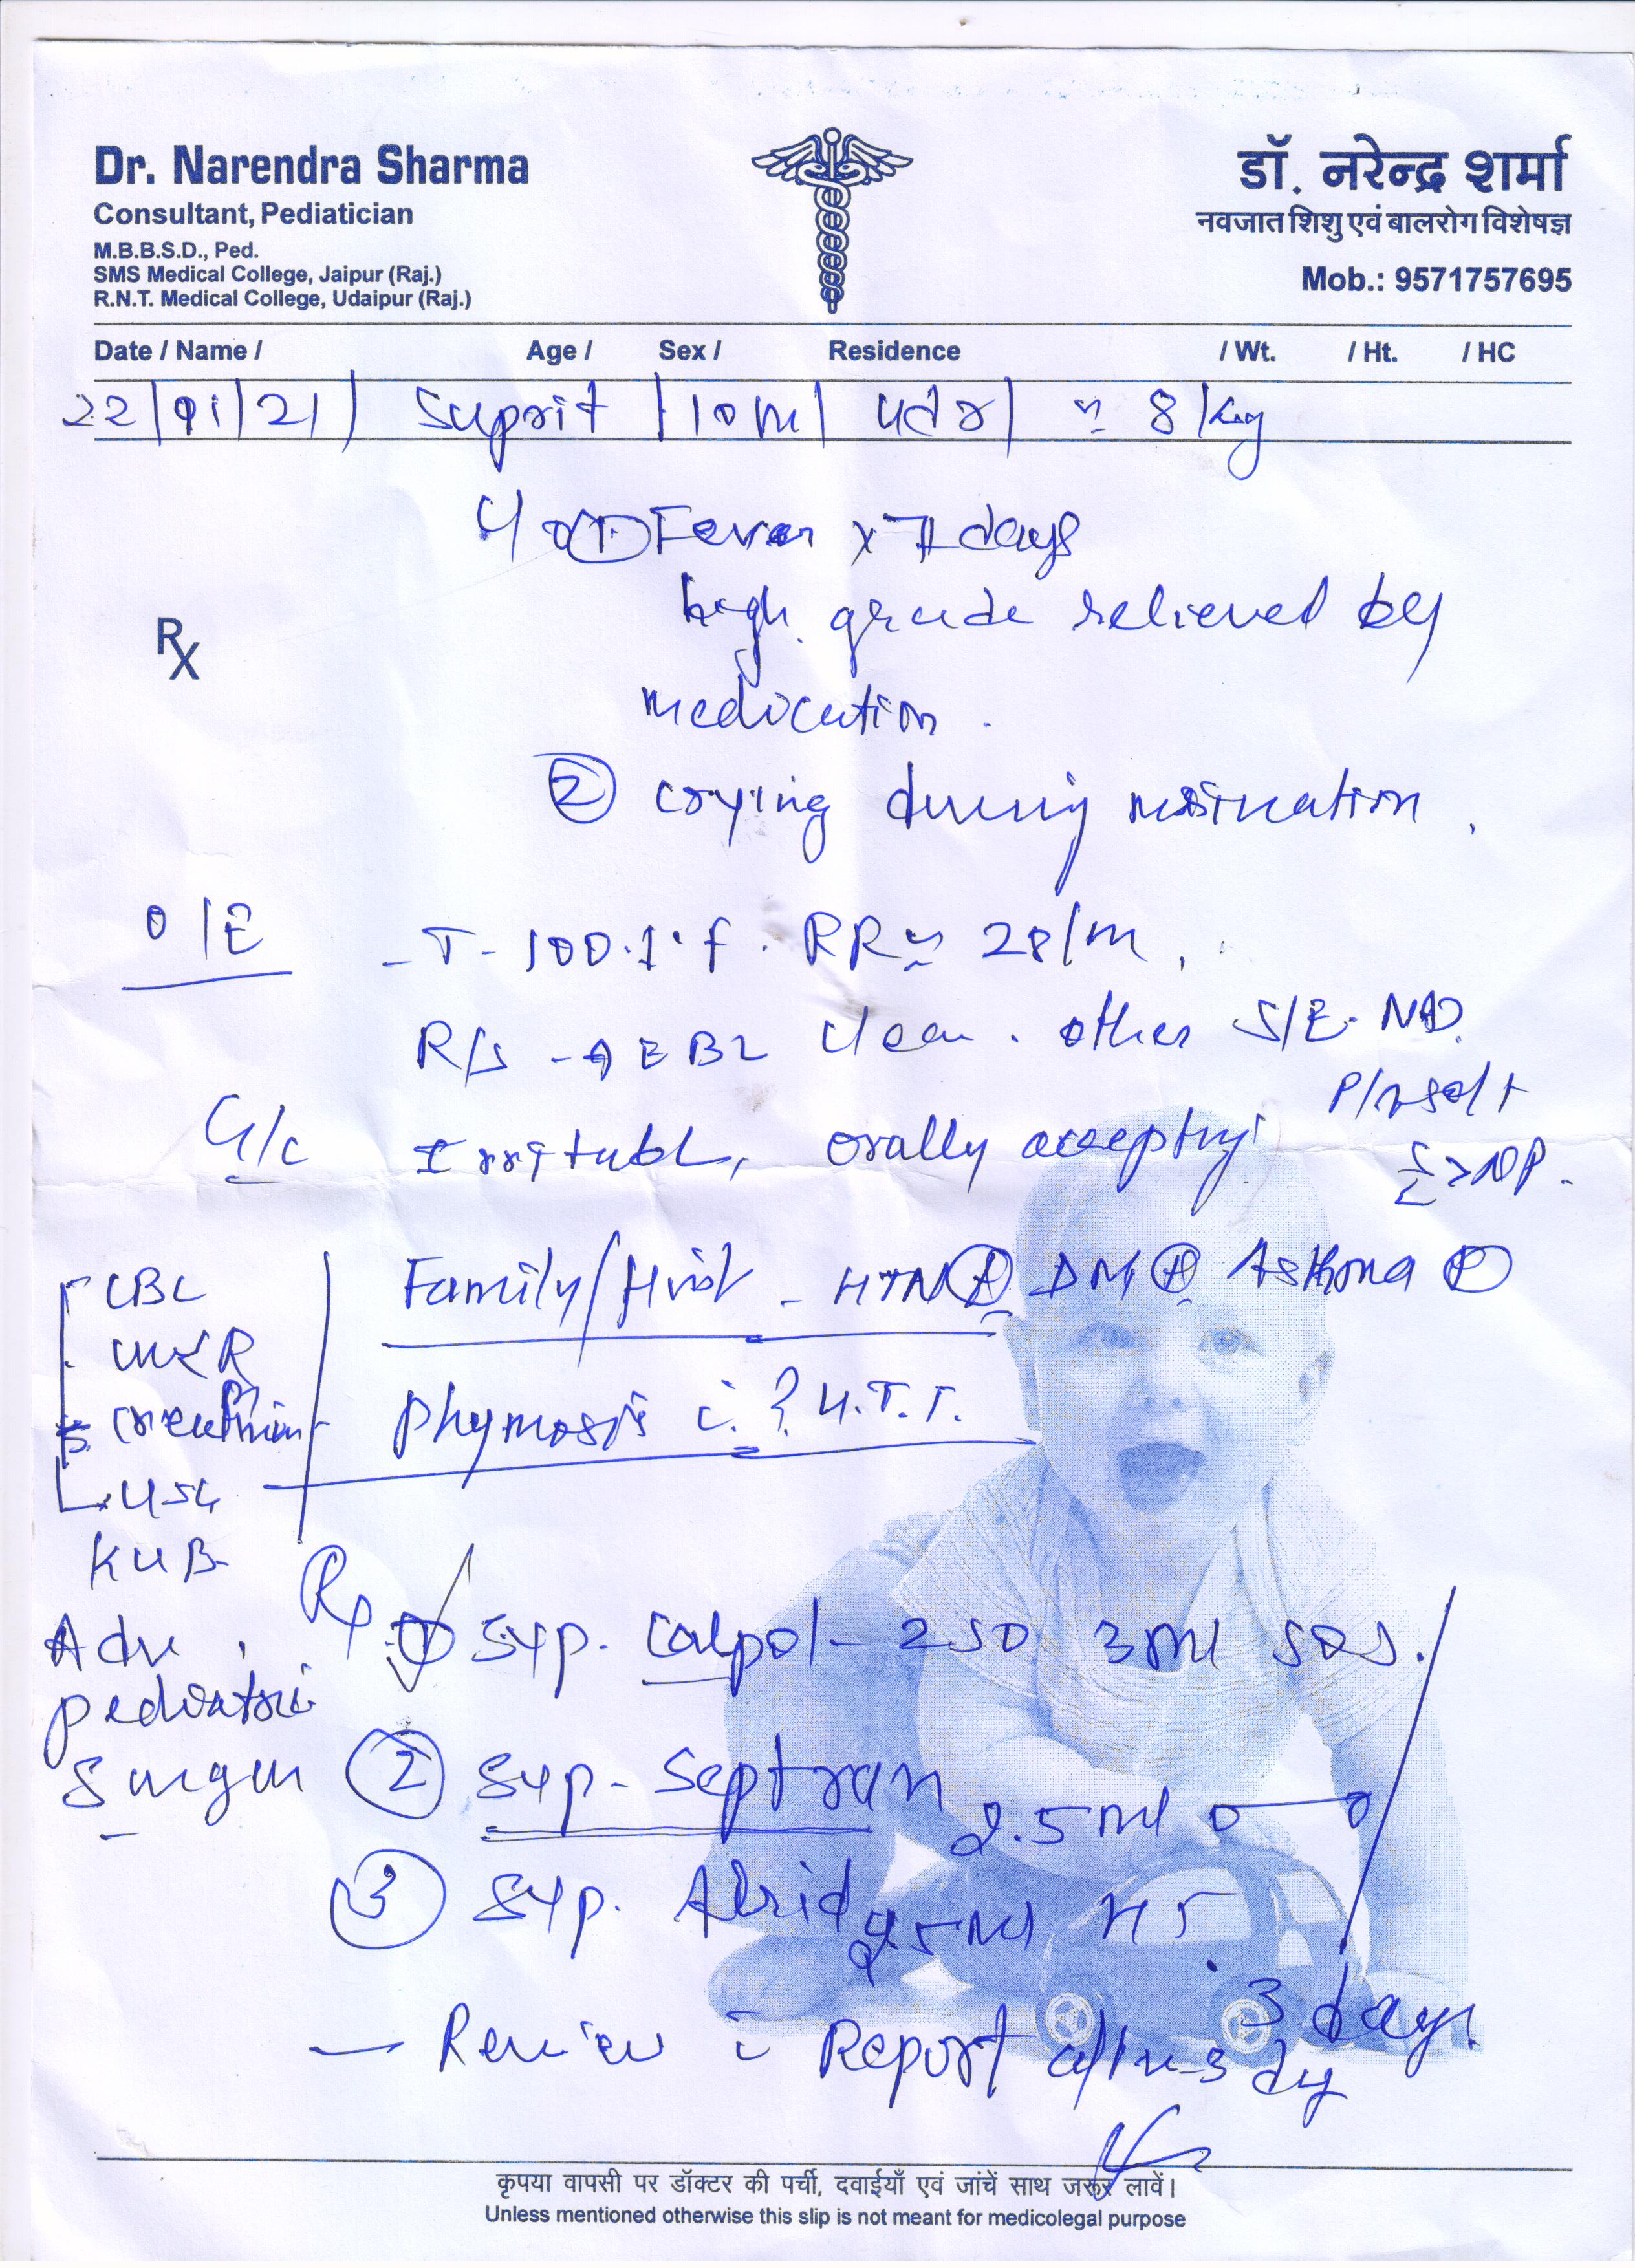 Dr. Narendra Sharma
Consultant, Pediatician
M.B.B.S.D., Ped.
SMS Medical College, Jaipur (Raj.)
R.N.T. Medical College, Udaipur (Raj.)
डॉ. नरेन्द्र शर्मा
नवजात शिशु एवं बालरोग विशेषज्ञ
Mob.: 9571757695
Date / Name / Age / Sex / Residence / Wt. / Ht. / HC
22/01/21 Suprit 10m 8 kg
C/o ① Fever x 7 days
high grade relieved by
Rx
medication.
② crying during
O/E - T- 100.1°F. RR 28/m,
R/S - AEBL clear. other S/E- NAD.
P/A soft
G/C orally accepting
Family/Hist - HTN DM Asthma
phymosis c̄ ? U.T.I.
CBC
creatinin
USG
KUB
Adv.
pediatric
Surgen
Rx ① Syp. Calpol - 250 3ml SOS.
② Syp- Septran 2.5ml
③ Syp. 2.5ml HS.
3 days.
— Review c̄ Report after 3 day
कृपया वापसी पर डॉक्टर की पर्ची, दवाईयाँ एवं जांचें साथ जरूर लावें।
Unless mentioned otherwise this slip is not meant for medicolegal purpose